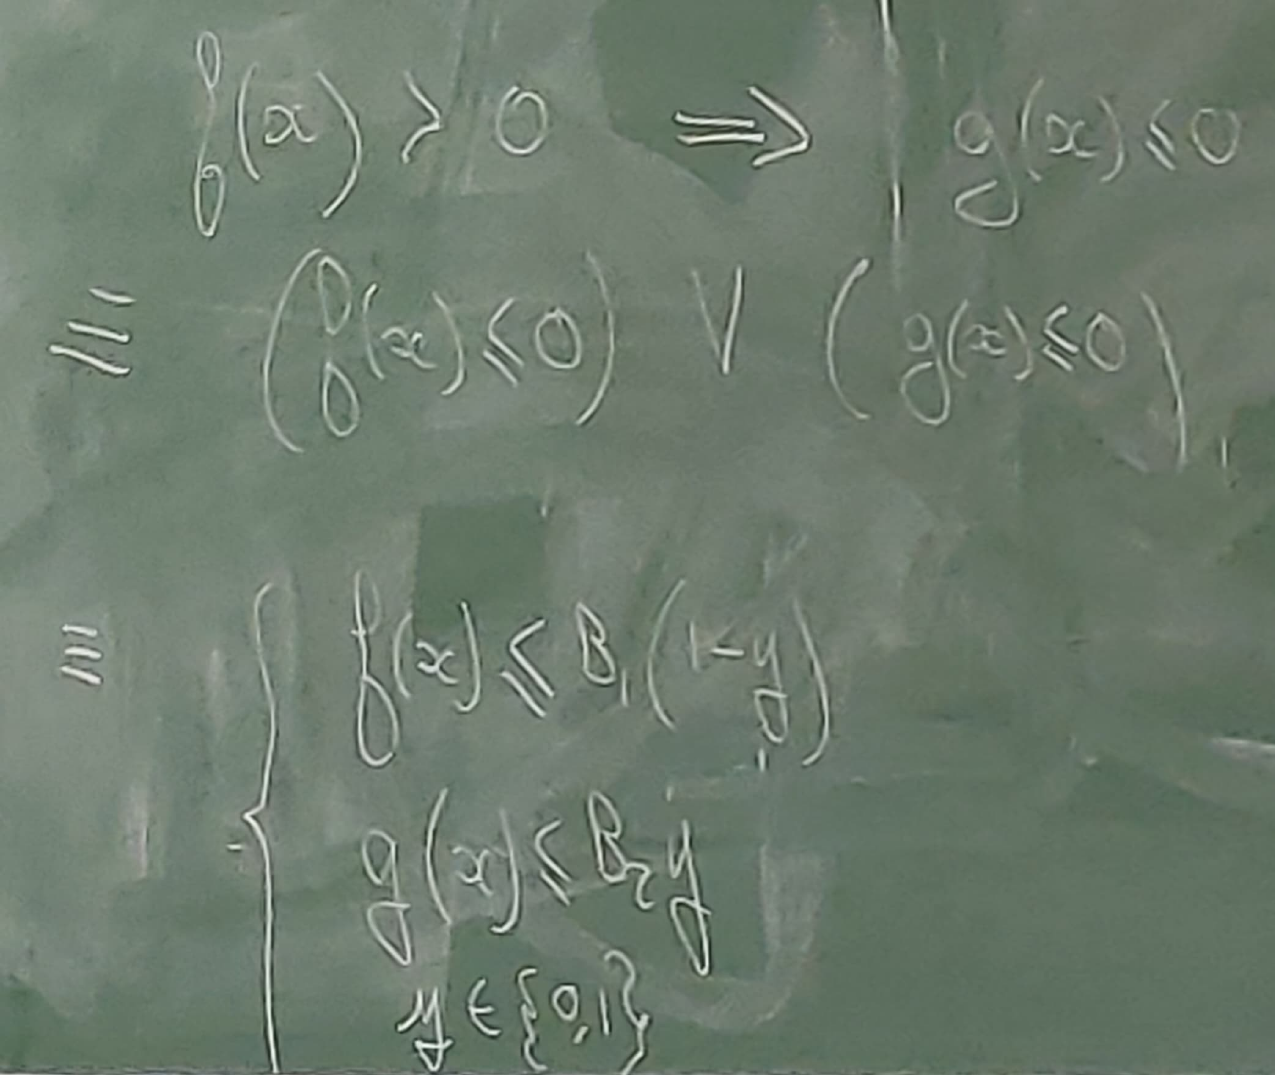 f(x) > 0 ⟹ g(x) ≤ 0
≡ (f(x) ≤ 0) ∨ (g(x) ≤ 0)
≡ { f(x) ≤ B₁(1-y)
g(x) ≤ B₂y
y ∈ {0,1}